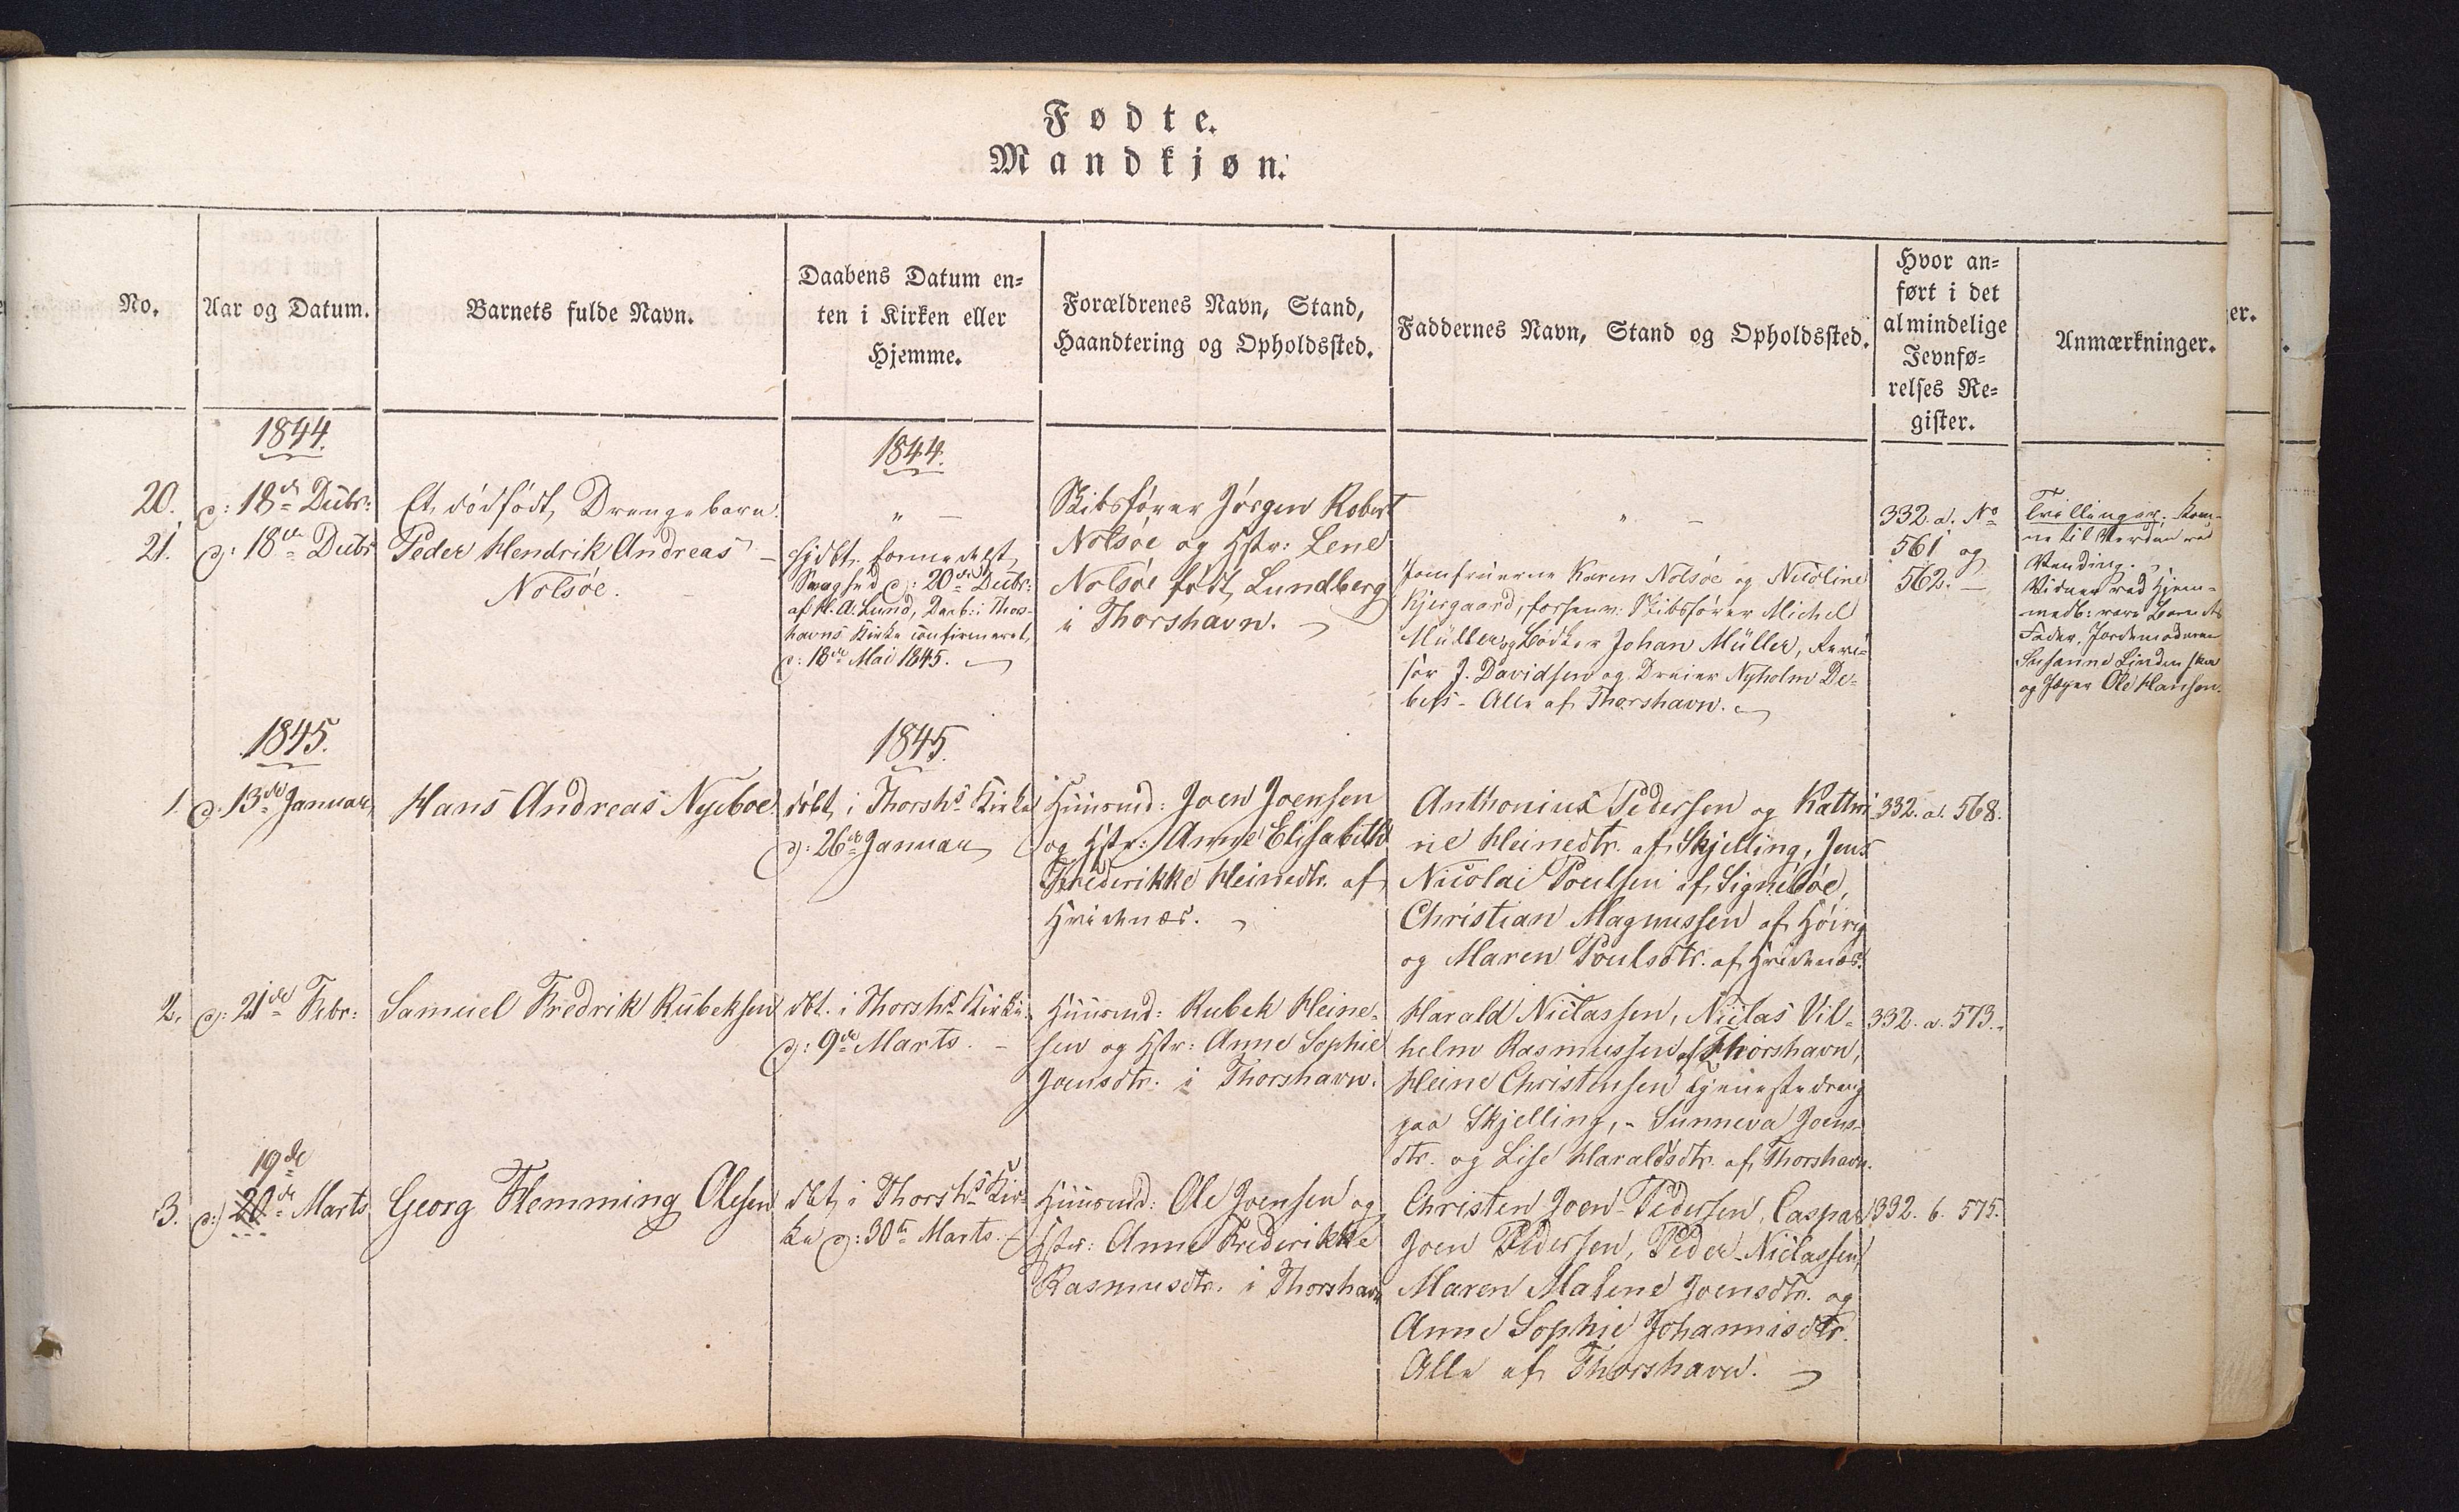 Fødte.
Mandkjøn.
No.
Aar og Datum.
Barnets fulde Navn.
Daabens Datum en-
ten i Kirken eller
Hjemme.
Forældrenes Navn, Stand,
Haandtering og Opholdssted.
Faddernes Navn, Stand og Opholdssted.
Hvor an-
ført i det
almindelige
Jevnfø-
relses Re-
gister.
Anmærkninger.
er.
1844.
1844.
20.
d: 18de Decbr:
Et dødfødt Drengebarn.
" —
Skibsfører Jørgen Robert
Nolsøe og Hstr: Lene
Nolsøe født Lundberg
i Thorshavn.
" —
332. a. No
561 og
562. —
Tvillinger; kom-
ne til Verden ved
Vending.
Vidner ved Hjem-
medb: vare Barnets
Fader, Jordemoderen
Susanne Lindenskov
og Jæger Ole Hansen.
21.
d: 18de Decbr
Peder Hendrik Andreas
Nolsøe.
Hjdbt. formedelst
Svaghed d: 20de Decbr:
af H. A. Lund, Daab: i Thors-
havns Kirke confirmeret
d: 18de Mai 1845.
Jomfruerne Karen Nolsøe og Nicoline
Kjergaard, forhenv: Skibsfører Michel
Müller og Bødker Johan Müller, Revi-
sor J. Davidsen og Dreier Nyholm De-
bess - Alle af Thorshavn.
1845.
1845.
1.
d. 13de Januar
Hans Andreas Nyeboe
døbt i Thorshs Kirke
d: 26de Januar
Huusmd: Joen Joensen
og Hstr: Anne Elisabeth
Frederikke Heinedtr. af
Hvidenæs.
Anthonius Pedersen og Kathri-
ne Heinedtr. af Skjelling, Jens
Nicolai Poulsen af Signebøe,
Christian Magnussen af Hóivig
og Maren Poulsdtr. af Hvidenæs.
332. a. 568.
2.
d: 21de Febr:
Samuel Fredrik Rubeksen
dbt. i Thorshs Kirke
d: 9de Marts. —
Huusmd: Rubek Heine-
sen og Hstr: Anne Sophie
Joensdtr. i Thorshavn.
Harald Niclassen, Niclas Vil-
helm Rasmussen af Thorshavn,
Heine Christensen tjenestedreng
paa Skjelling, - Sunneva Joens-
dtr. og Lise Haraldsdtr. af Thorshavn.
332. a. 573.
19de
3.
d: 20de Marts
Georg Flemming Olesen
dbt i Thorshs Kir-
ke d: 30te Marts.
Huusmd: Ole Joensen og
Hstr: Anne Frederikke
Rasmusdtr. i Thorshavn
Christen Joen Pedersen, Caspar
Joen Pedersen, Peder Niclassen,
Maren Malene Joensdtr. og
Anne Sophie Johannisdtr.
Alle af Thorshavn.
332. b. 575.